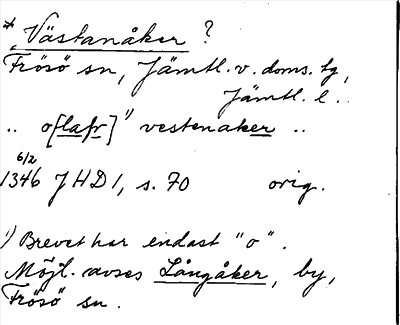 * Västanåker ?
Frösö sn, Jämtl. v. doms. tg,
Jämtl. l.
.. o[lafr]¹⁾ vestenaker ..
6/2
1346 JHD 1, s. 70 orig.
¹⁾ Brevet har endast "o".
Möjl. avses Långåker, by,
Frösö sn.